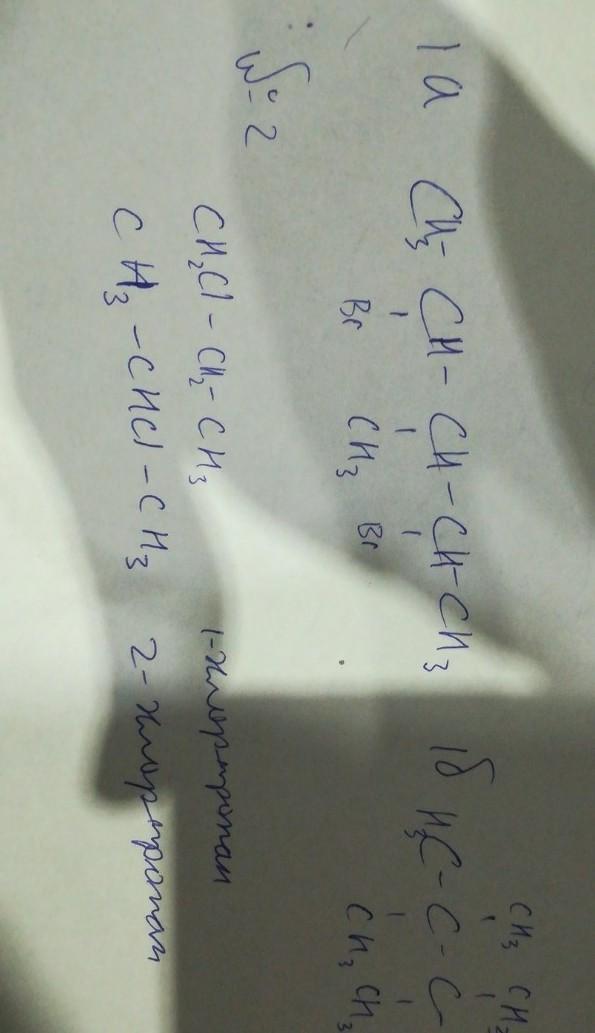 1а CH₃-CH-CH-CH-CH₃ 1б H₃C-C-C
Br CH₃ Br
CH₃ CH₃
CH₃ CH₃
№2
CH₂Cl-CH₂-CH₃ 1-хлорпропан
CH₃-CHCl-CH₃ 2-хлорпропан